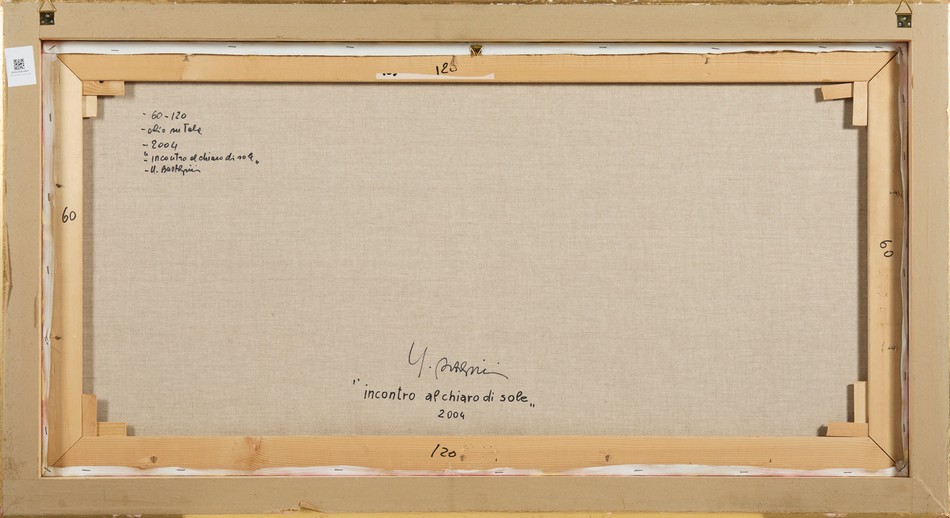 120
- 60-120
- olio su Tela
- 2004
- "incontro al chiaro di sole"
- U.
60
60
U.
"incontro al chiaro di sole"
2004
120